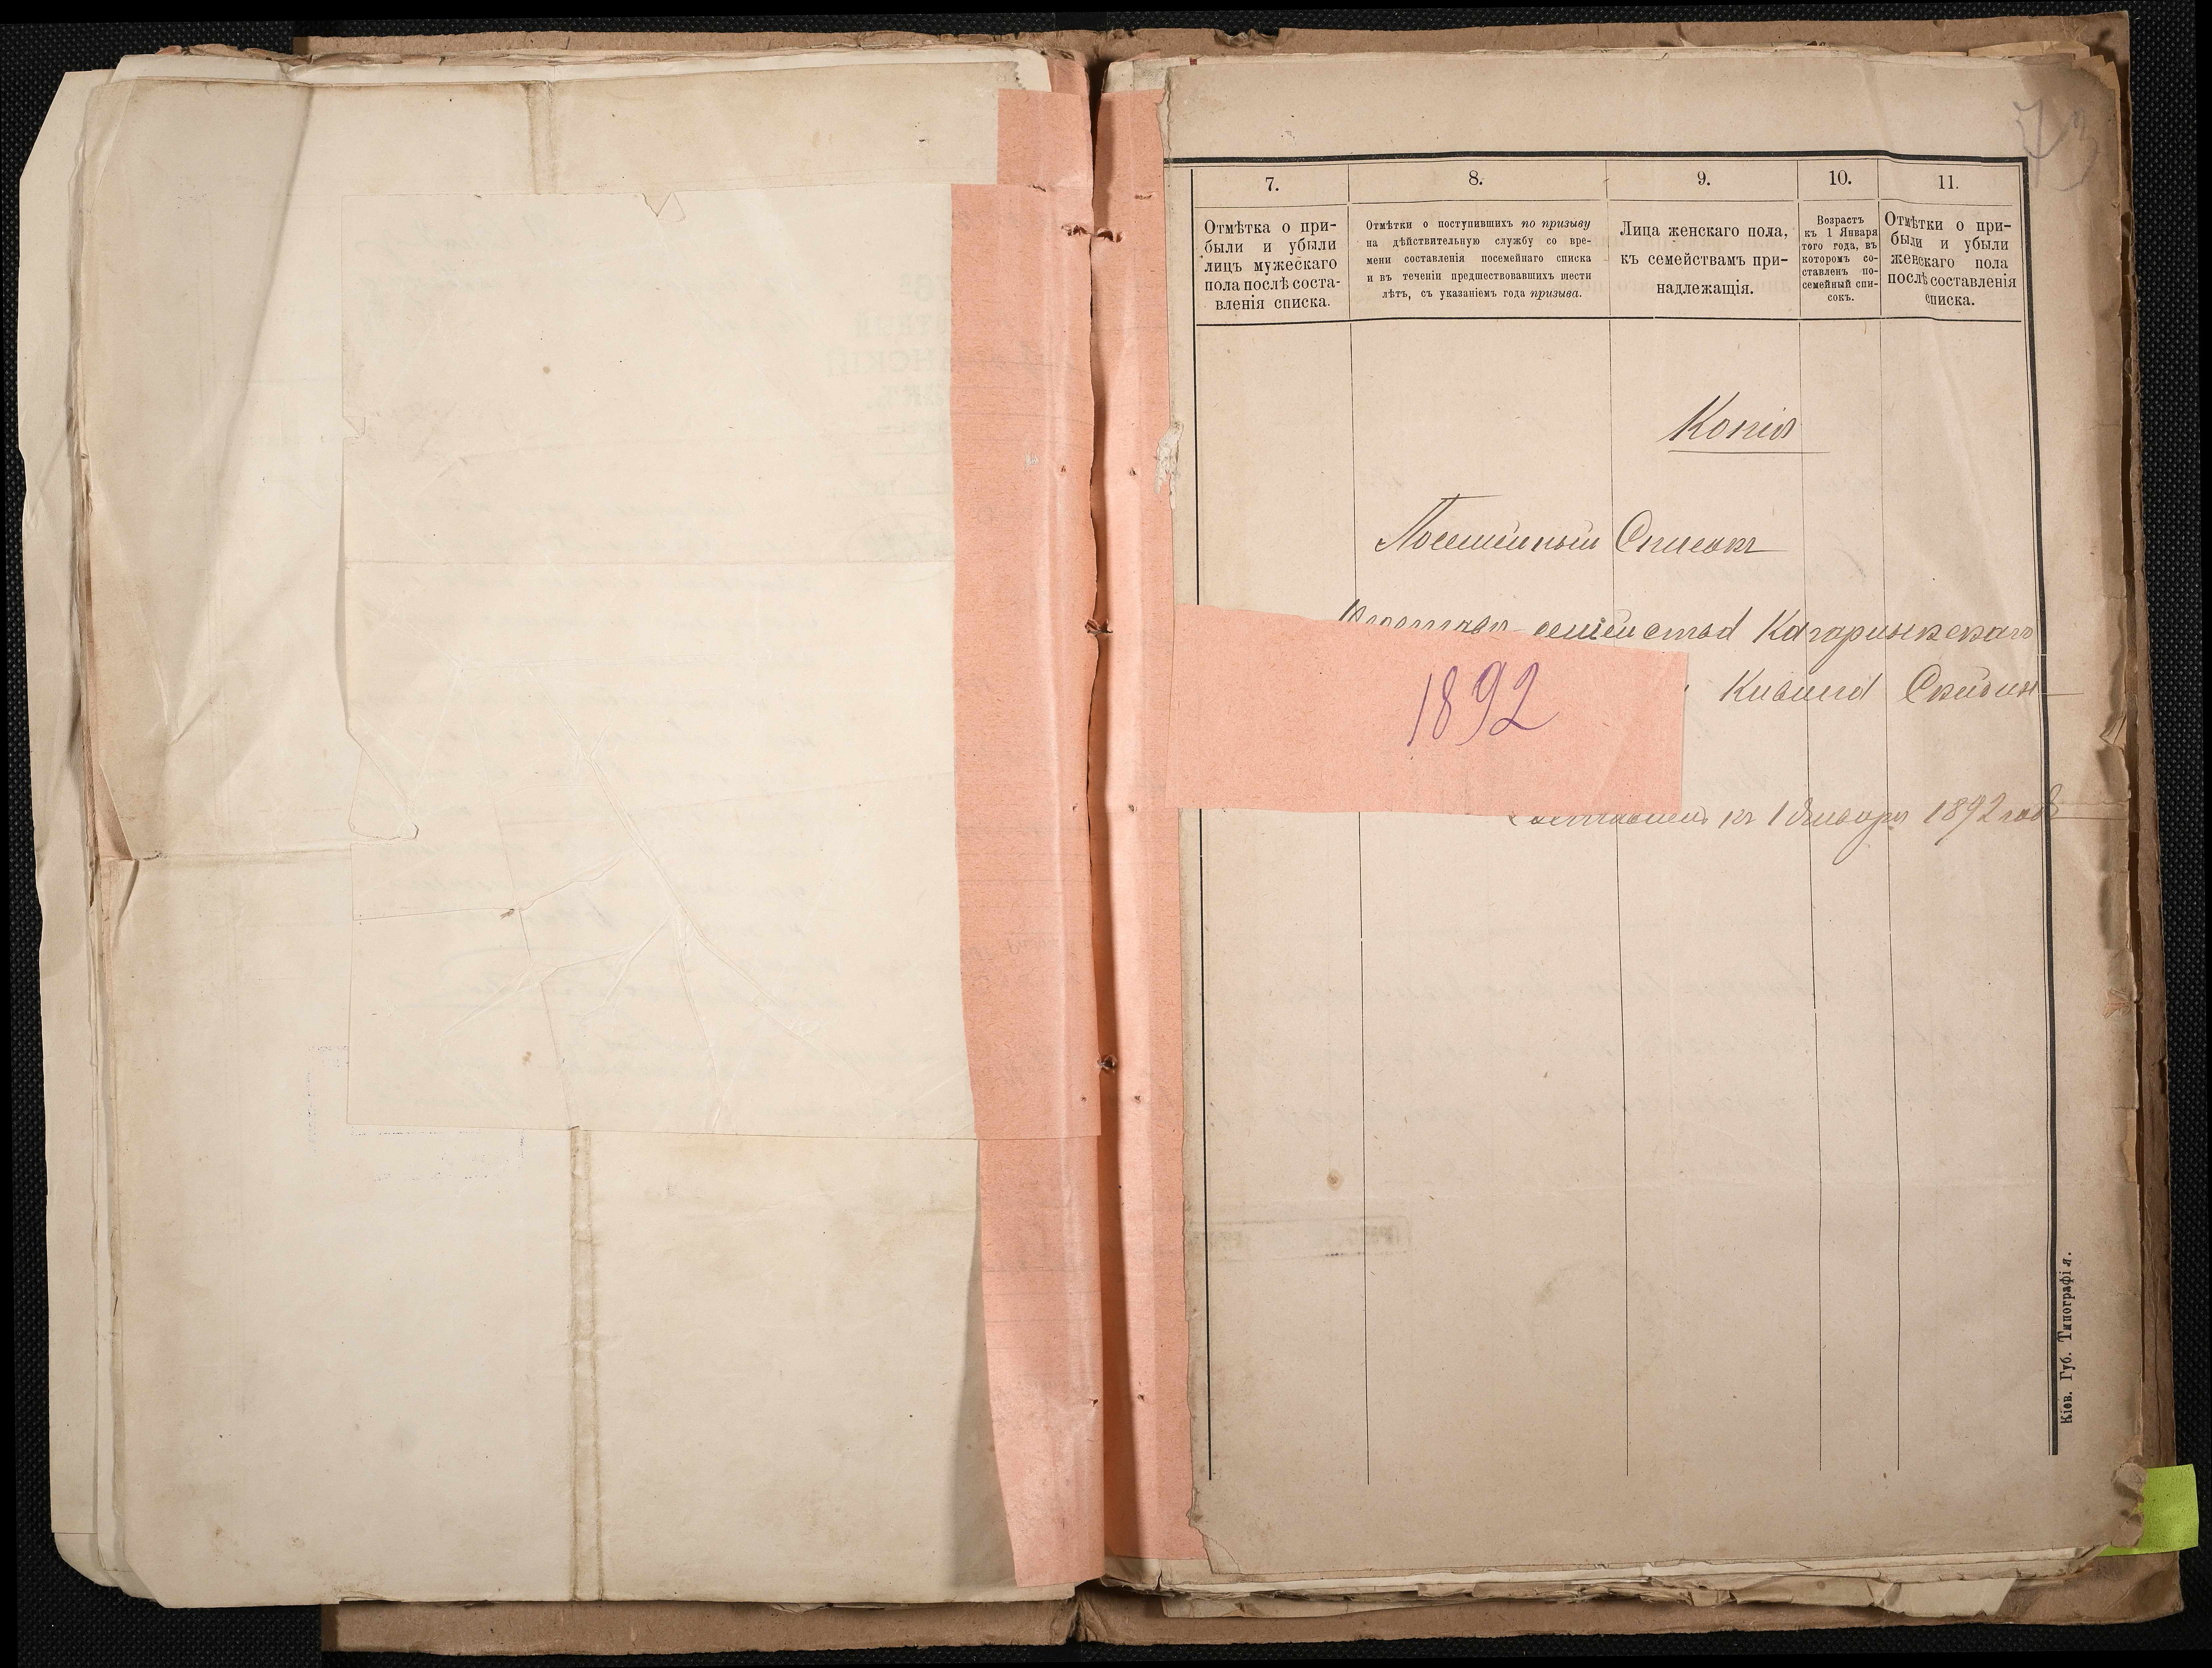 73
7.
8.
9.
10.
11.
Отмѣтка о при-
были и убыли
лицъ мужескаго
пола послѣ соста-
вленія списка.
Отмѣтки о поступившихъ по призыву
на дѣйствительную службу со вре-
мени составленія посемейнаго списка
и въ теченіи предшествовавшихъ шести
лѣтъ, съ указаніемъ года призыва.
Лица женскаго пола,
къ семействамъ при-
надлежащія.
Возрастъ
къ 1 Января
того года, въ
которомъ со-
ставленъ по-
семейный спи-
сокъ.
Отмѣтки о при-
были и убыли
женскаго пола
послѣ составленія
списка.
Копія
Посемейный Списокъ
семейства Кагарлыкскаго
1892
Составленъ къ 1 Января 1892 года
Кіев. Губ. Типографія.